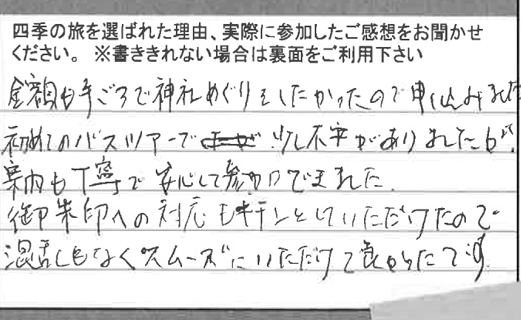 四季の旅を選ばれた理由、実際に参加したご感想をお聞かせ
ください。 ※書ききれない場合は裏面をご利用下さい
金額も手ごろで神社めぐりをしたかったので申し込みました
初めてのバスツアーで 少し不安がありましたが、
案内も丁寧で安心して参加できました。
御朱印への対応もキチンとしていただけたので
混乱もなくスムーズにいただけて良かったです。